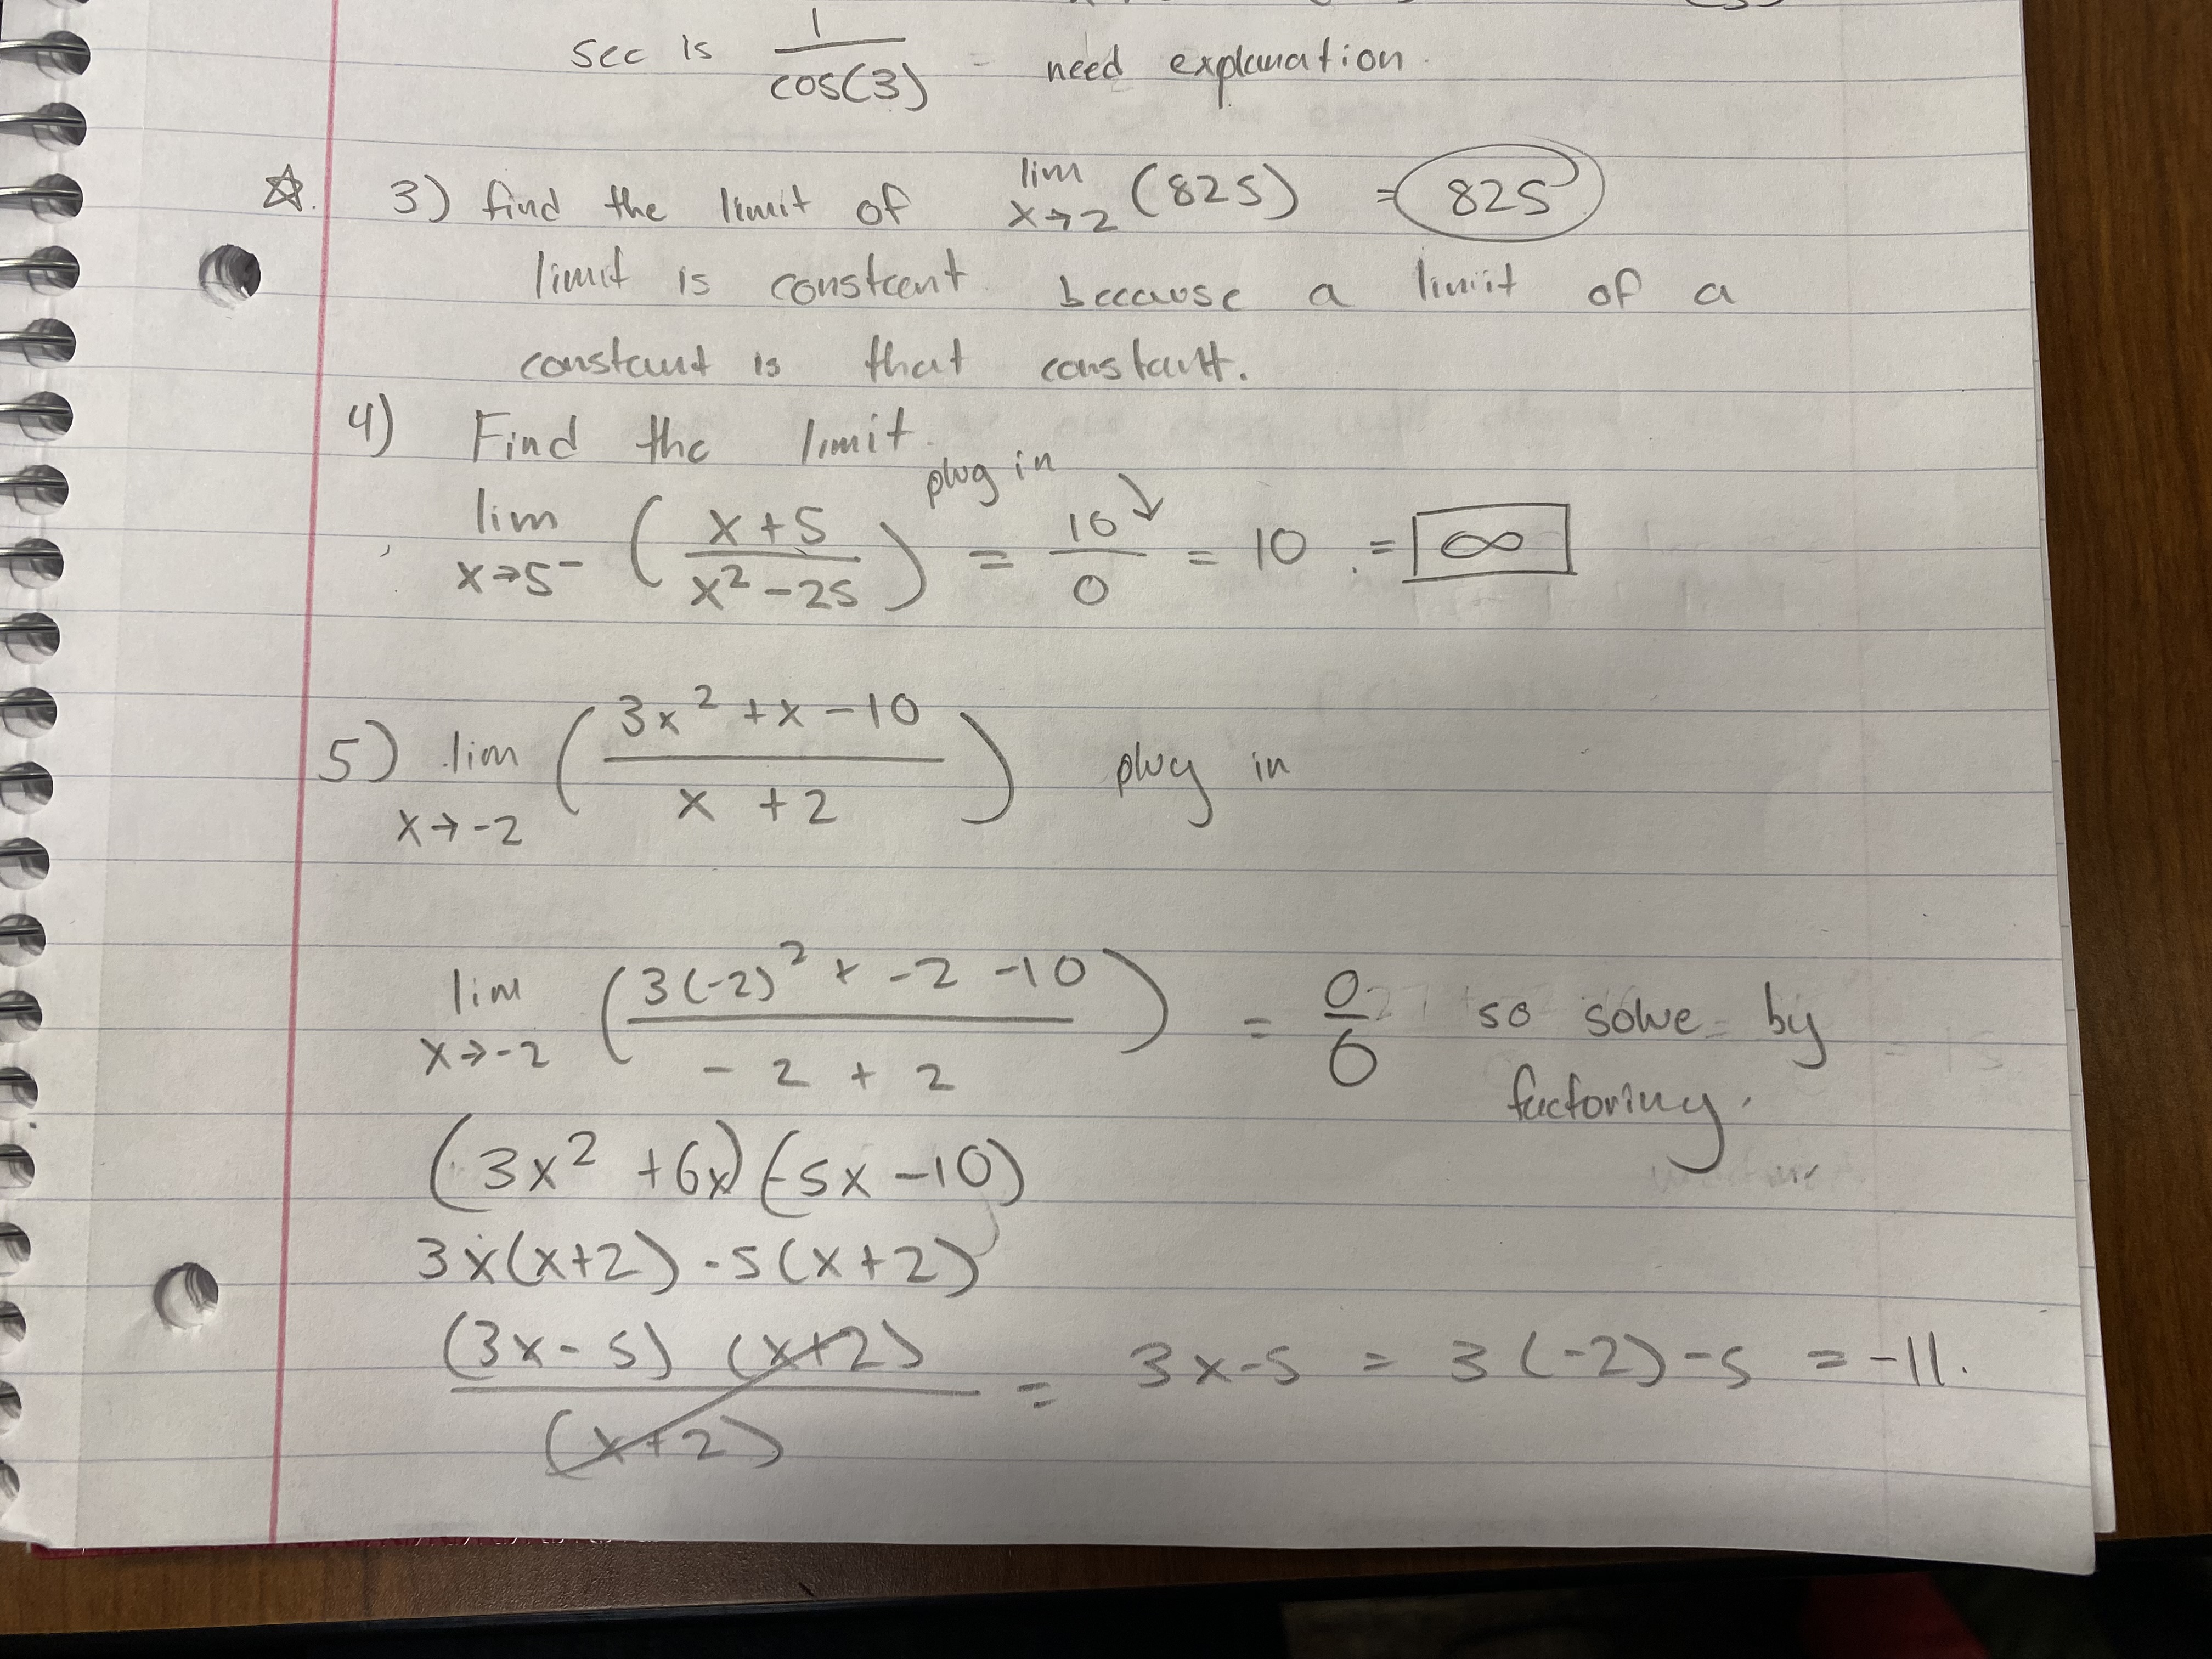 sec is 1/cos(3) - need explanation.
☆ 3) find the limit of lim x→2 (825) = 825
limit is constant because a limit of a
constant is that constant.
4) Find the limit. plug in
lim x→5- (x+5 / x²-25) = 10/0 = 10 = ∞
5) lim x→-2 (3x²+x-10 / x+2) plug in
lim x→-2 (3(-2)²+-2-10 / -2+2) = 0/0 so solve by
factoring.
(3x²+6x)(-5x-10)
3x(x+2)-5(x+2)
(3x-5)(x+2) / (x+2) = 3x-5 = 3(-2)-5 = -11.